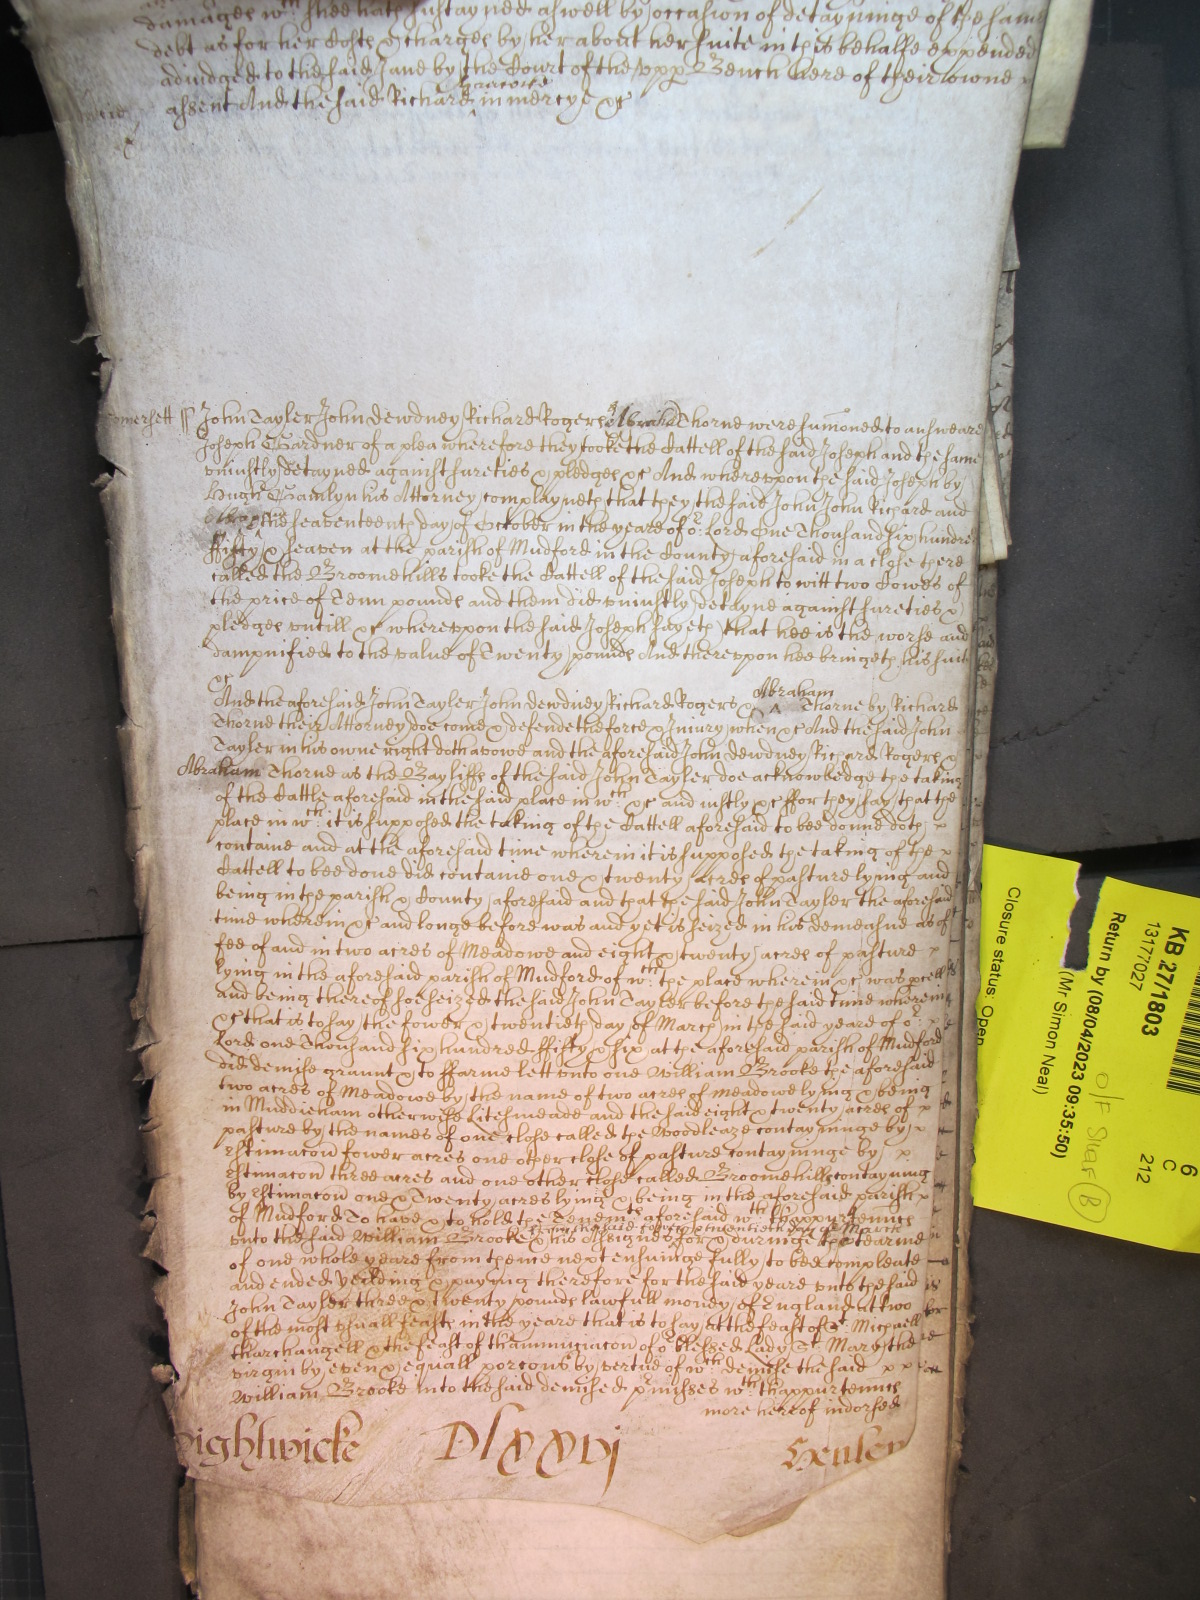 damages wth. shee hath sustayned aswell by occasion of detayninge of the same
debt as for her Costs & charges by her about her suite in this behalfe expended
adiudged to the said Jane by the Court of the vpp Bench here of their owne x
assent And the said Richard in mercye &c
Somersett ss John Tayler John Dewdney Richard Rogers & Abraha Thorne were sumoned to answeare
Joseph Gardner of a plea wherefore they tooke the Cattell of the said Joseph and the same
vniustly detayned against sureties & pledges &c And wherevpon the said Joseph by
Hugh Gamlyn his Attorney complayneth that they the said John John Richard and
the seaventeenth day of October in the yeare of or. Lord One Thousand six hundred
ffifty & seaven at the parish of Mudford in the County aforesaid in a close there
called the Broomehills tooke the Cattell of the said Joseph to witt two Cowes of
the price of Tenn pounds and them did vniustly detayne against sureties &
pledges vntill &c wherevppon the said Joseph sayeth that hee is the worse and
dampnified to the value of Twenty pounds And therevpon hee bringeth his suite
&c
And the aforesaid John Tayler John Dewdney Richard Rogers & Abraham Thorne by Richard
Thorne their Attorney doe come & defende the force & Iniury when &c And the said John
Tayler in his owne right doth avowe and the aforesaid John Dewdney Richard Rogers &
Abraham Thorne as the Bayliffs of the said John Tayler doe acknowledge the taking
of the Cattle aforesaid in the said place in wth. &c and iustly &c ffor they say that the
place in wth. it is supposed the taking of the Cattell aforesaid to bee donne doth x
containe and at the aforesaid time wherein it is supposed the taking of the x
Cattell to bee done did containe one & twenty acres of pasture lying and
being in the parish & County aforesaid and that the said John Tayler the aforesaid
time wherein &c and longe before was and yet is seized in his demeasne as of
fee of and in two acres of Meadowe and eight & twenty acres of pasture x
lying in the aforesaid parish of Mudford of wth. the place wherein &c was pcell
and being thereof soe seized the said John Tayler before the said time wherein
&c that is to say the fower & twentieth day of March in the said yeare of or. x
Lord one Thousand six hundred ffifty & six at the aforesaid parish of Mudford
did demise graunt & to ffarme lett vnto one William Brooke the aforesaid
two acres of Meadowe by the name of two acres of meadowe lying & being
in Muddieham otherwise Litesmeade and the said eight & twenty acres of x
pasture by the names of one close called the Woodleaze contayninge by x
Estimacon fower acres one other close of pasture contayninge by x
Estimacon three acres and one other close called Broomehills contayning
by Estimacon one & Twenty acres lying & being in the aforesaid parish x
of Mudford To have & to hold the Tenemts aforesaid wth thappurtennces
from the said fower & twentieth day of March
vnto the said William Brooke & his Assignes for & duringe the tearme
of one whole yeare from thence next ensuinge fully to bee compleate
and ended yeilding & paying therefore for the said yeare vnto the said
John Tayler three & twenty pounds lawfull money of England at two
of the most vsuall feasts in the yeare that is to say at the feast of St. Michaell
tharchangell & the feast of thannunciacon of or blessed Lady St. Mary the
virgin by even & equall porcons by vertue of wth. demise the said x x
William Brooke into the said demised pmisses wth. thappurtennces
more hereof indorsed
Dlxxvj
KB 27/1803
13177027
Return by (08/04/2023 09:35:50)
(Mr Simon Neal)
Closure status: Open
6
C
212
O/F Shelf B